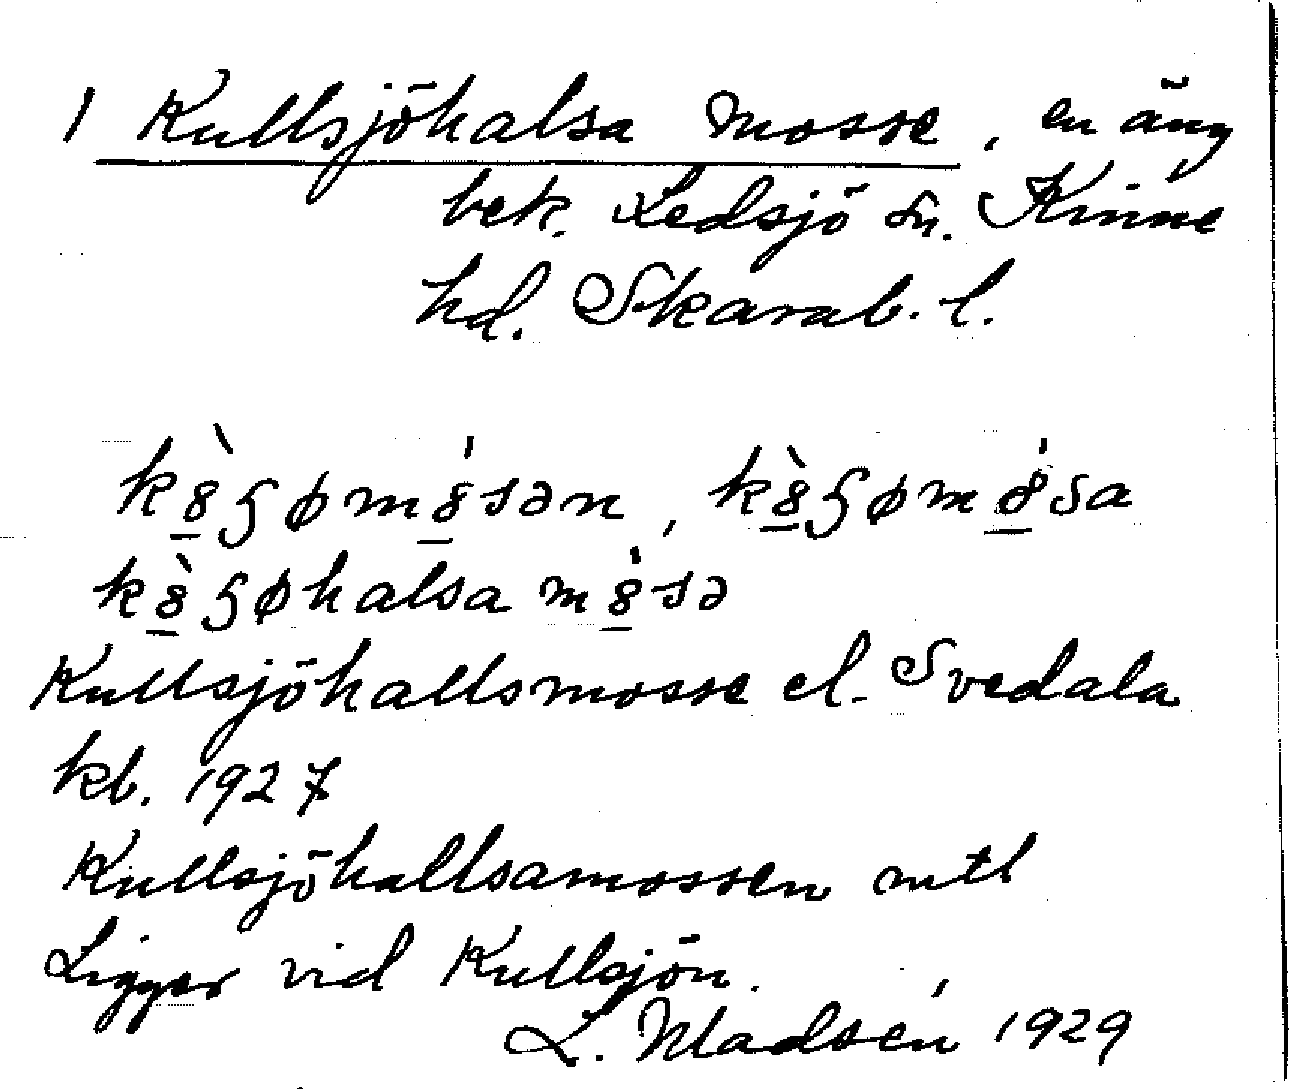 1 Kullsjöhalsa mosse, en äng
bek. Ledsjö sn. Kinne
hd. Skarab. l.
kȣ̲̀ʂømȣ̲́sən, kȣ̲̀ʂømȣ̲́sa
kȣ̲̀ʂøhalsa mȣ̲́sə
Kullsjöhallsmosse el. Svedala
kb. 1927
Kullsjöhallsamossen mtl
Ligger vid Kullsjön.
L. Madsén 1929